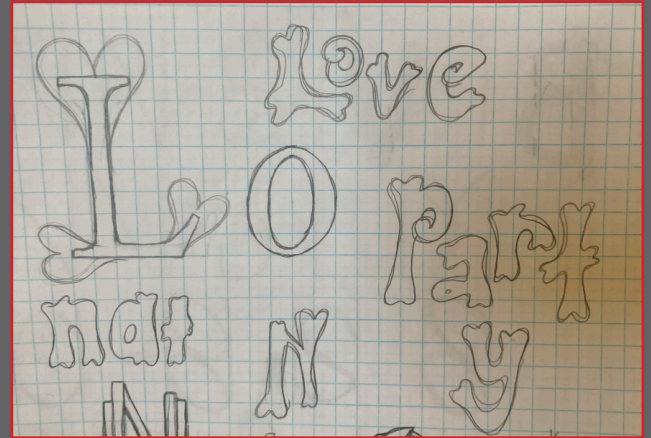 Love
L O
Part
nat N y
N